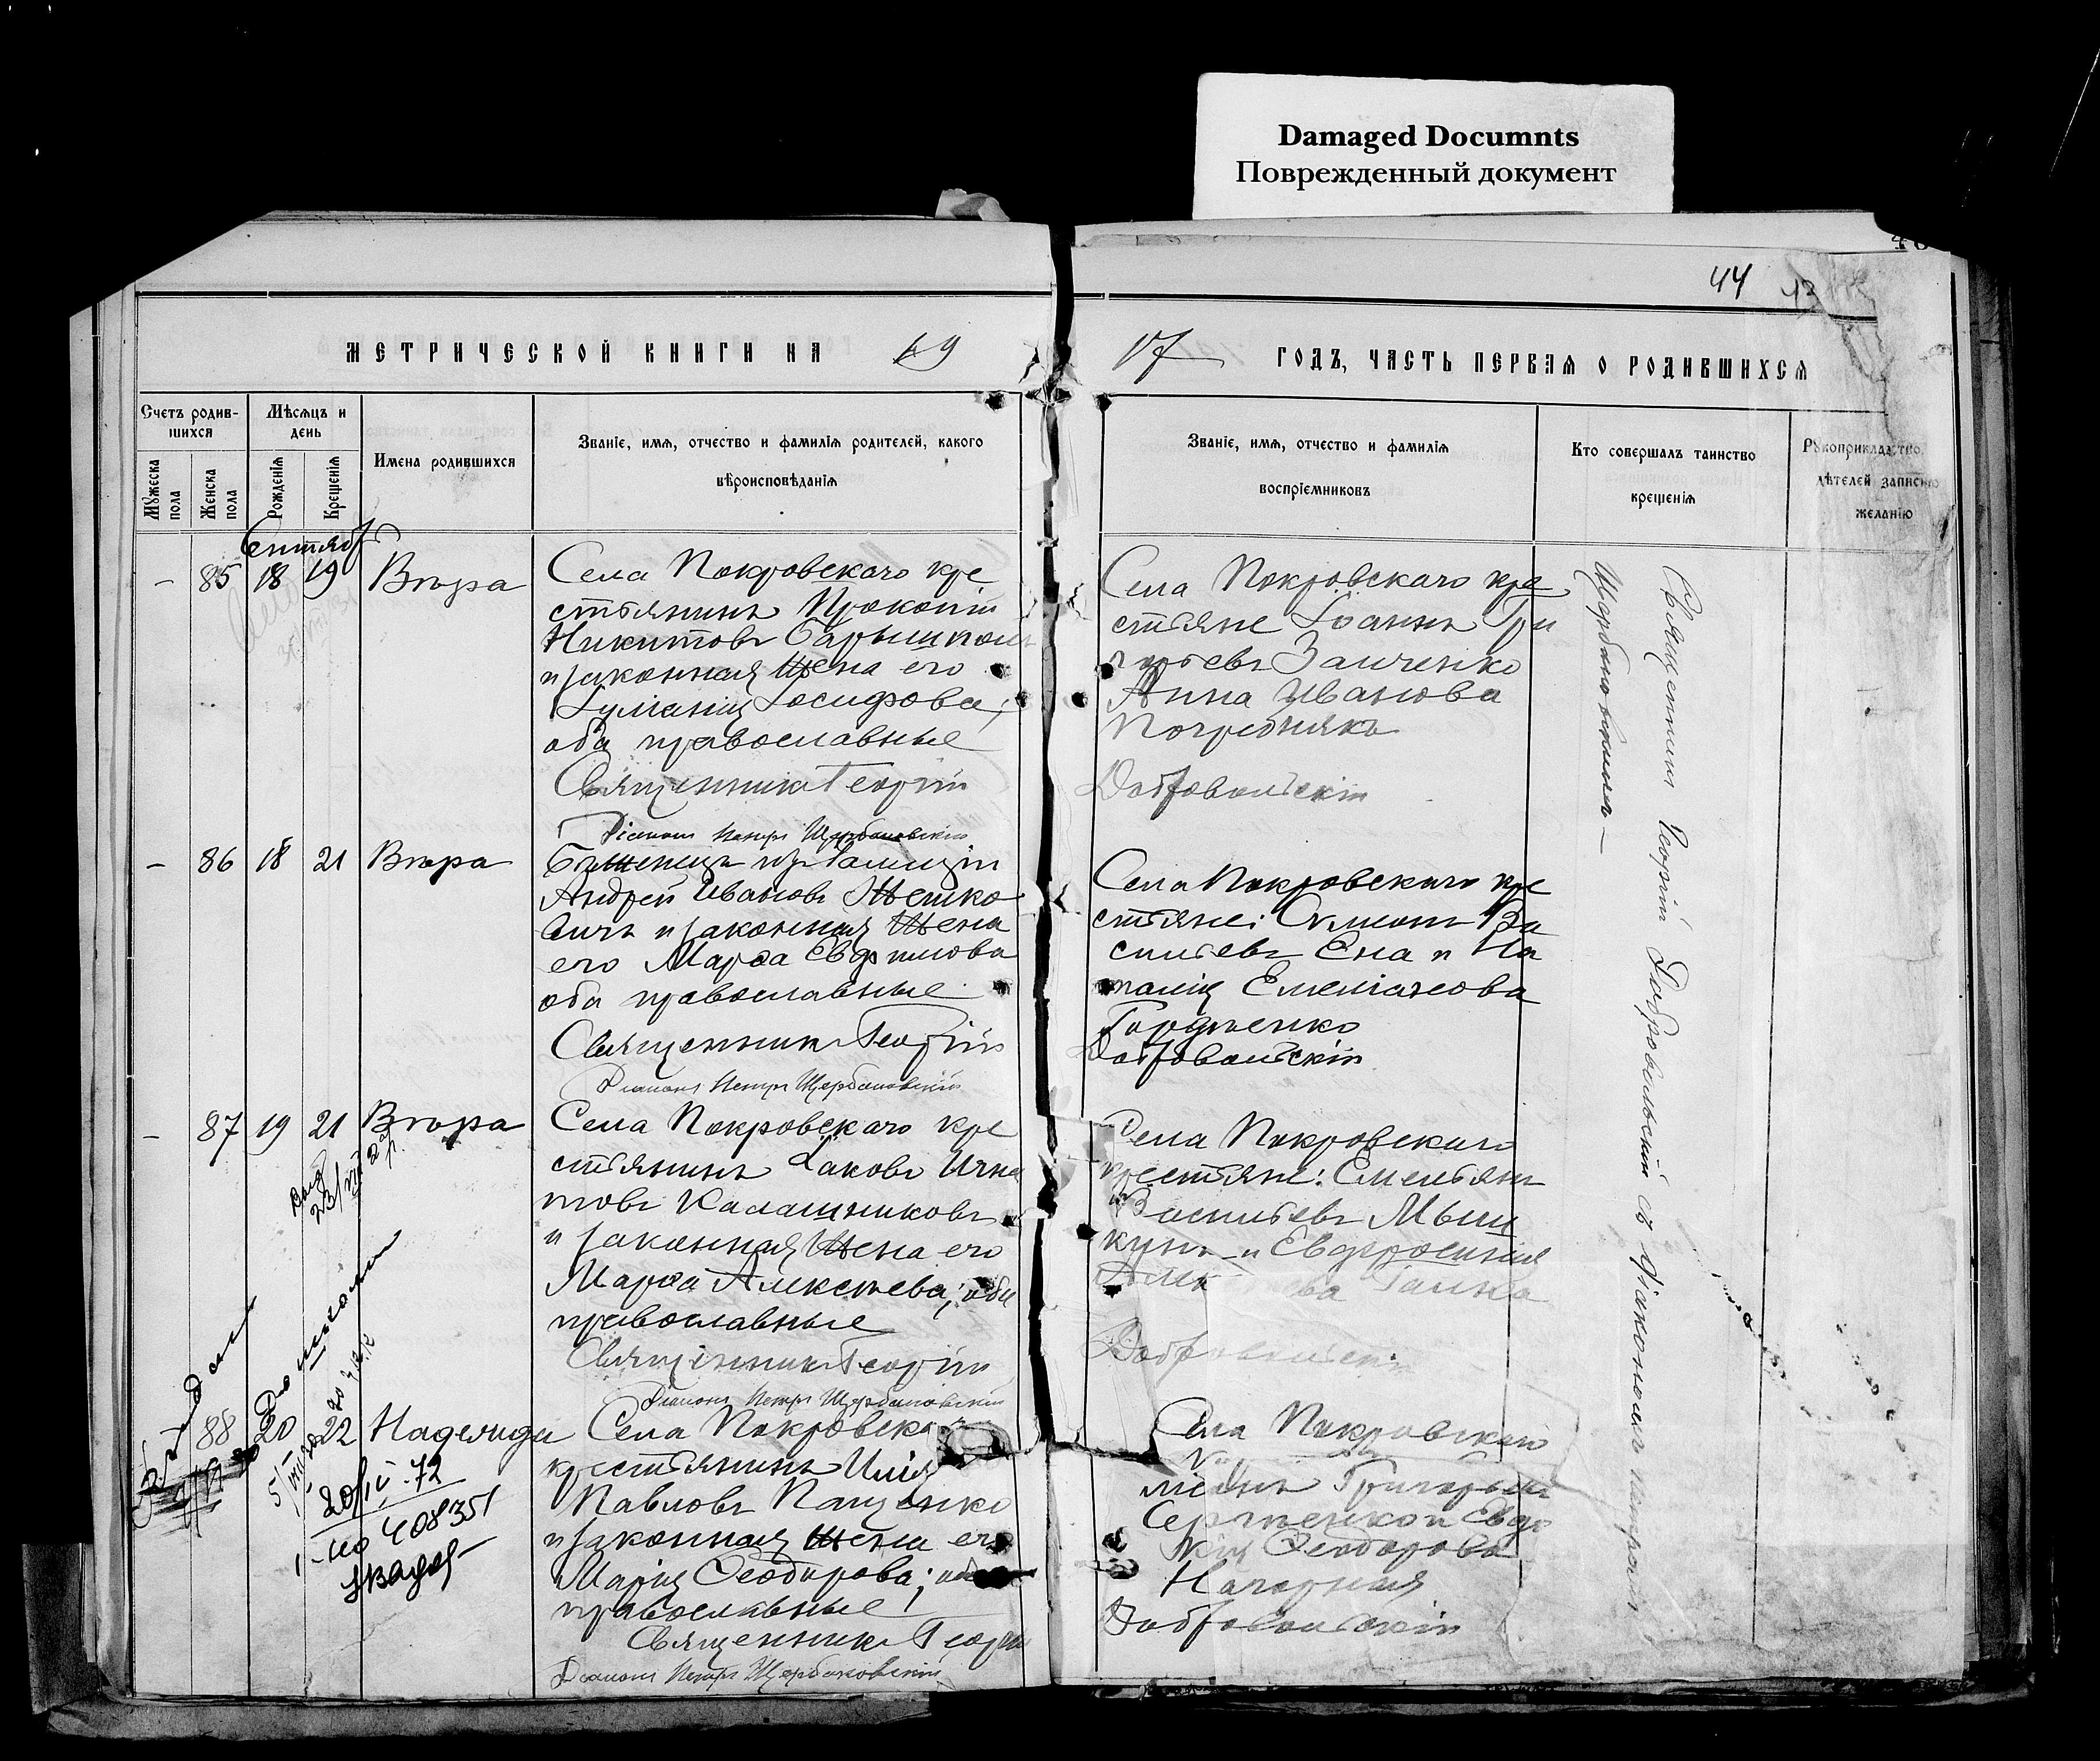 Damaged Documnts
Поврежденный документ
44
МЕТРИЧЕСКОЙ КНИГИ НА 19
17 ГОДЪ, ЧАСТЬ ПЕРВАЯ О РОДИВШИХСЯ
Счетъ родив-
шихся
Мѣсяцъ и
день
Имена родившихся
Званіе, имя, отчество и фамилія родителей, какого
вѣроисповѣданія
Мужеска
пола
Женска
пола
Рожденія
Крещенія
Званіе, имя, отчество и фамилія
воспріемниковъ
Кто совершалъ таинство
крещенія
Рукоприкладство
дѣтелей записи
желанію
Сентябр
– 85 18 19 Вѣра
Села Покровскаго кре
стьянинъ Прокопій
Никитовъ
и законная жена его
Іосифова,
оба православные
Священникъ Георгій
Діаконъ Петръ Щербаковскій
Села Покровскаго кре
стьяне Іоаннъ Гри
горьевъ Заиченко
Анна Иванова
Погребнякъ
Добровольскій
– 86 18 21 Вѣра
Бѣженецъ
Андрей Ивановъ
вичъ и законная жена
его Марѳа Евфимова
оба православные
Священникъ Георгій
Діаконъ Петръ Щербаковскій
Села Покровскаго кре
стьяне: Симеонъ Ва
сильевъ Ена и На
талія Емеліанова
Гордѣенко
Добровольскій
– 87 19 21 Вѣра
Села Покровскаго кре
стьянинъ Іаковъ Игна
товъ Калашниковъ
и законная жена его
Марѳа Алексѣева; оба
православные
Священникъ Георгій
Діаконъ Петръ Щербаковскій
Села Покровскаго
крестьяне: Емельянъ
Васильевъ Мыш
кунъ и Евдросинія
Галка
Добровольскій
88 20 22 Надежда
Села Покровска
крестьянинъ Илія
Павловъ Пащенко
и законная жена его
Марія Ѳеодорова; оба
православные
Священникъ Георгій
Діаконъ Петръ Щербаковскій
Села Покровскаго
Григорьевъ
Сергѣенко и Евдо
кія Ѳеодорова
Нагорная
Добровольскій
408351
Священникъ Георгій Добровольскій съ діакономъ Петромъ
Щербаковскимъ –